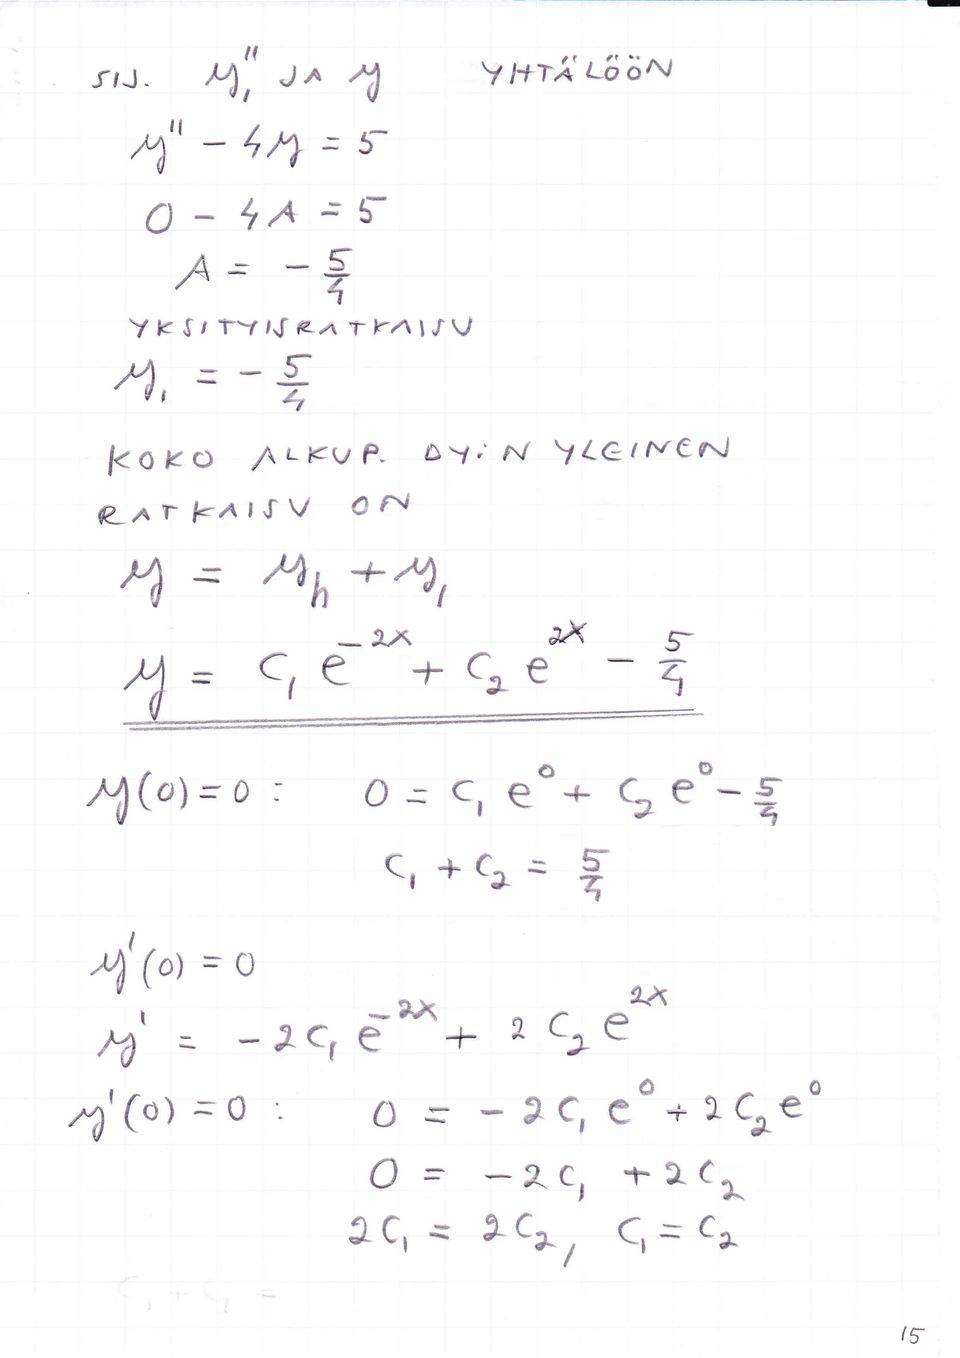 SIJ. y₁'' JA y YHTÄLÖÖN
y'' - 4y = 5
0 - 4A = 5
A = - 5/4
YKSITYISRATKAISU
y₁ = - 5/4
KOKO ALKUP. DY:N YLEINEN
RATKAISU ON
y = yₕ + y₁
y = C₁ e^(-2x) + C₂ e^(2x) - 5/4
y(0) = 0 : 0 = C₁ e⁰ + C₂ e⁰ - 5/4
C₁ + C₂ = 5/4
y'(0) = 0
y' = - 2C₁ e^(-2x) + 2C₂ e^(2x)
y'(0) = 0 : 0 = - 2C₁ e⁰ + 2C₂ e⁰
0 = - 2C₁ + 2C₂
2C₁ = 2C₂, C₁ = C₂
C₁ + C₂ =
15